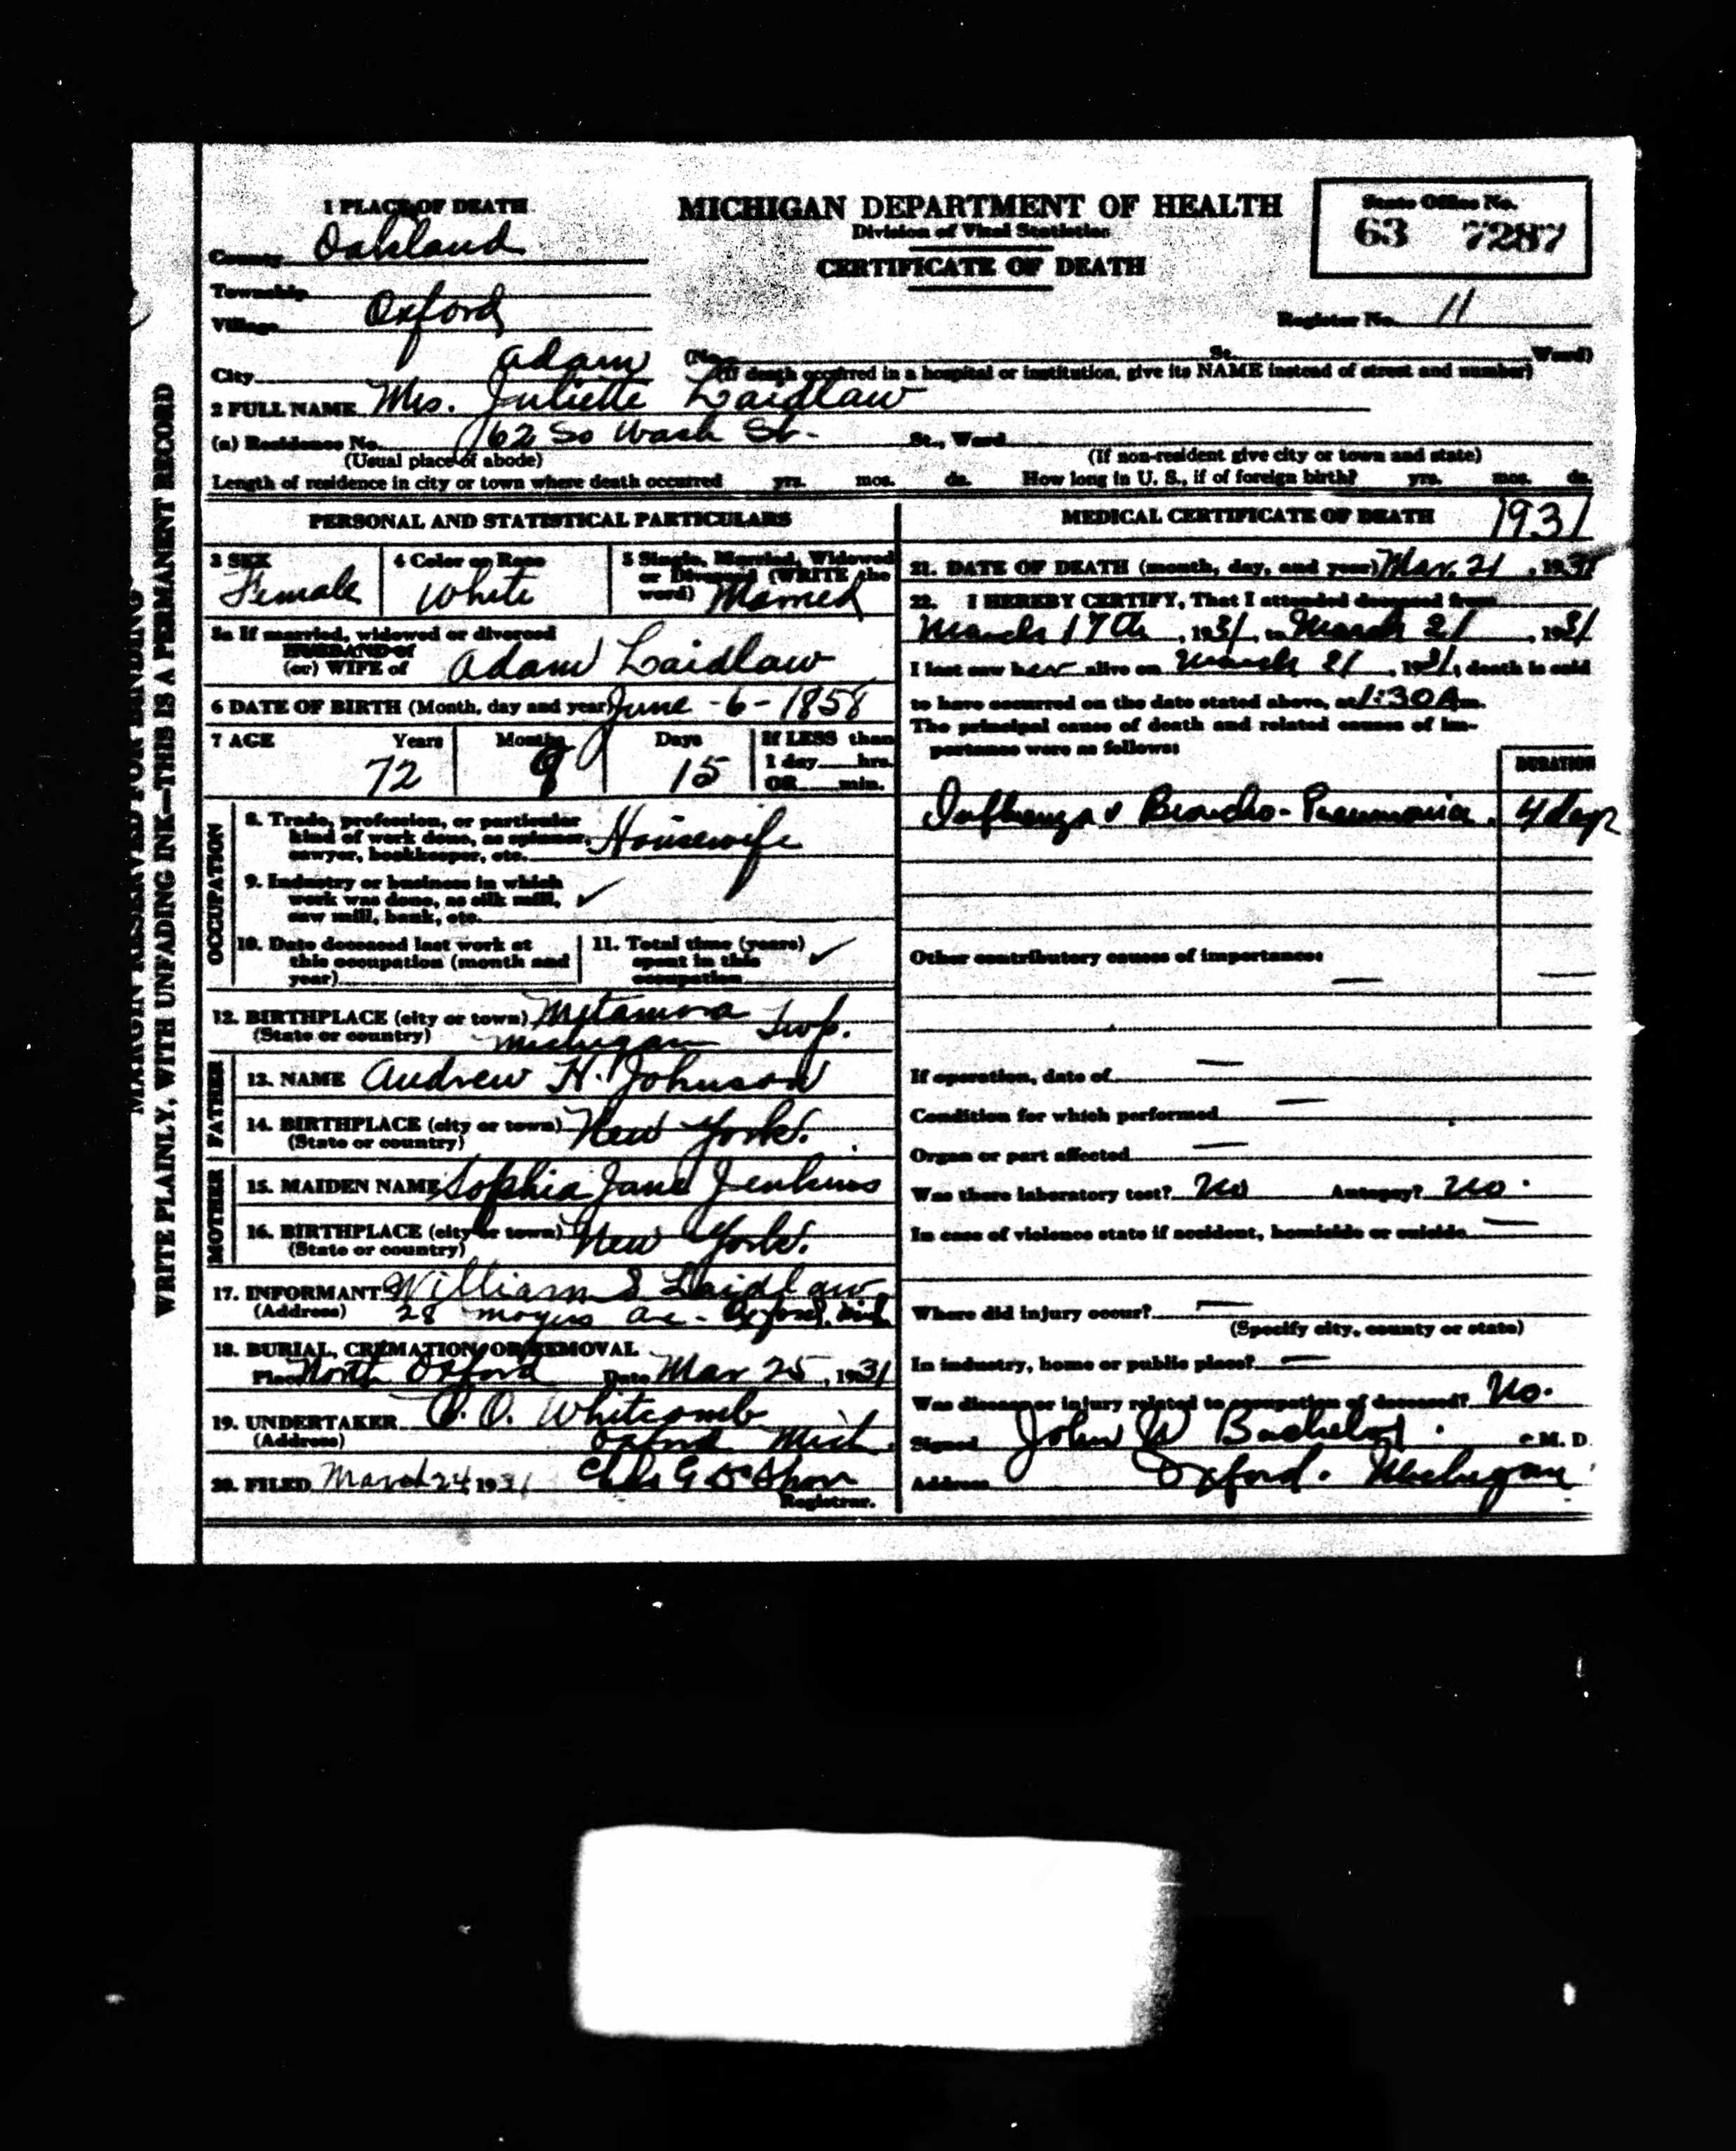 1 PLACE OF DEATH
MICHIGAN DEPARTMENT OF HEALTH
Division of Vital Statistics
CERTIFICATE OF DEATH
State Office No.
63 7287
County Oakland
Township
Village Oxford
Register No. 11
City
(No. St. Ward)
(If death occurred in a hospital or institution, give its NAME instead of street and number)
Adam
2 FULL NAME Mrs. Juliette Laidlaw
(a) Residence No. 62 So Wash St. St., Ward
(Usual place of abode) (If non-resident give city or town and state)
Length of residence in city or town where death occurred yrs. mos. ds. How long in U. S., if of foreign birth? yrs. mos. ds.
PERSONAL AND STATISTICAL PARTICULARS
3 SEX
Female
4 Color or Race
White
5 Single, Married, Widowed
or Divorced (WRITE the
word) Married
5a If married, widowed or divorced
HUSBAND of
(or) WIFE of Adam Laidlaw
6 DATE OF BIRTH (Month, day and year) June -6- 1858
7 AGE Years Months Days If LESS than
72 9 15 1 day hrs.
OR min.
OCCUPATION
8. Trade, profession, or particular
kind of work done, as spinner, Housewife
sawyer, bookkeeper, etc.
9. Industry or business in which
work was done, as silk mill, ✓
saw mill, bank, etc.
10. Date deceased last work at
this occupation (month and
year)
11. Total time (years) ✓
spent in this
occupation
12. BIRTHPLACE (city or town) Metamora Twp.
(State or country) Michigan
FATHER
13. NAME Andrew H. Johnson
14. BIRTHPLACE (city or town) New York.
(State or country)
MOTHER
15. MAIDEN NAME Sophia Jane Jenkins
16. BIRTHPLACE (city or town) New York.
(State or country)
17. INFORMANT William S Laidlaw
(Address) 28 Ave - Oxford, Mich.
18. BURIAL, CREMATION OR REMOVAL
Place North Oxford Date Mar 25, 1931
19. UNDERTAKER O. Whitcomb
(Address) Oxford Mich.
20. FILED March 24, 1931 Chas G
Registrar.
MEDICAL CERTIFICATE OF DEATH 1931
21. DATE OF DEATH (month, day, and year) Mar. 21, 1931
22. I HEREBY CERTIFY, That I attended deceased from
March 17th, 1931, to March 21, 1931
I last saw her alive on March 21, 1931, death is said
to have occurred on the date stated above, at 1:30 A m.
The principal cause of death and related causes of im-
portance were as follows:
DURATION
Influenza & Broncho-Pneumonia. 4 days
Other contributory causes of importance:
—
If operation, date of —
Condition for which performed —
Organ or part affected —
Was there laboratory test? No Autopsy? No.
In case of violence state if accident, homicide or suicide —
Where did injury occur? —
(Specify city, county or state)
In industry, home or public place? —
Was disease or injury related to occupation of deceased? No.
Signed John W Bachelor. M. D.
Address Oxford. Michigan
MARGIN RESERVED FOR BINDING
WRITE PLAINLY, WITH UNFADING INK—THIS IS A PERMANENT RECORD